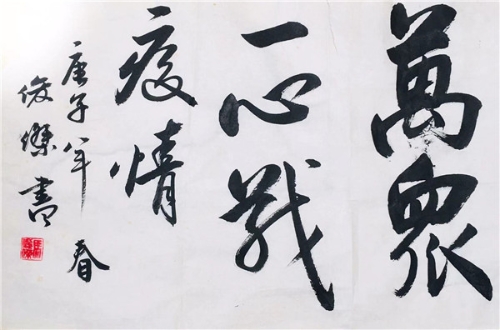 萬眾
一心戰
疫情
庚子年春
俊傑書